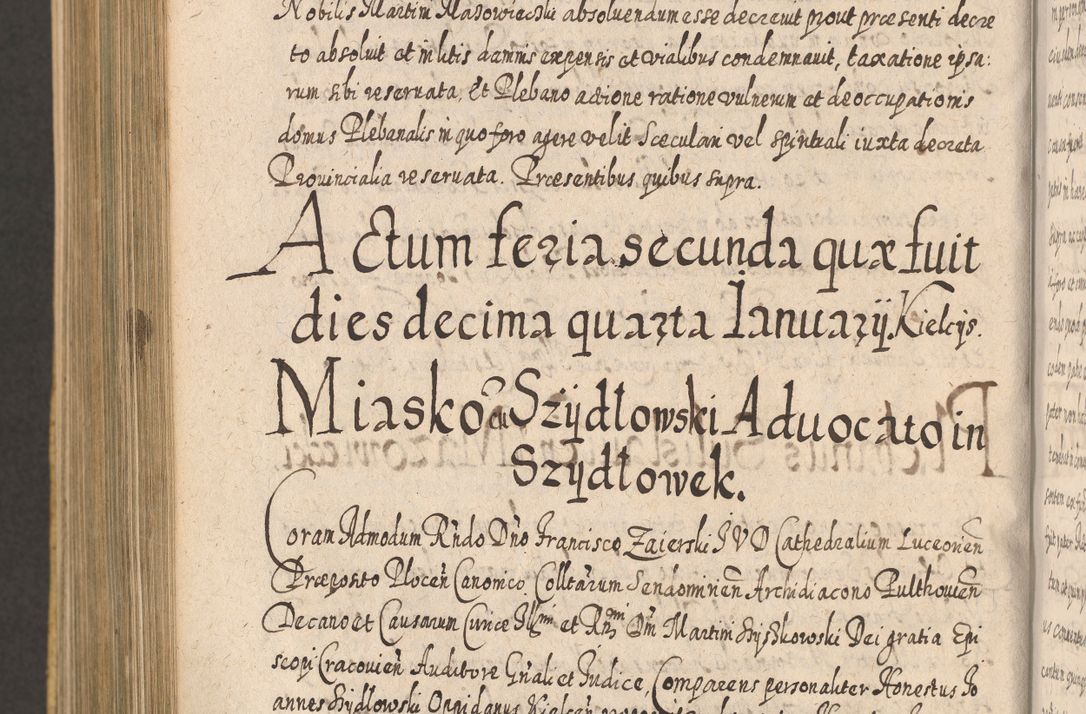 Nobilis Martim Mazowiecski absoluendum esse decreuit prout præsenti decre
to absoluit et in litis damnis expensis et vialibus condemnauit, taxatione ipsa:
rum sibi reseruata, Et Plebano actione ratione vulnerum et de occupationis
domus Plebanalis in quo foro agere velit Sæculari vel spirituali iuxta decreta
Prouincialia reseruata. Præsentibus quibus supra.
Actum feria secunda quæ fuit
dies decima quarta Ianuarÿ. Kielcÿs.
Miasko cū Szÿdłowski Aduocato in
Szÿdłowek.
Coram Admodum Rndo Dno Francisco Zaierski J V D Cathedralium Luceorien
Præposito Plocen Canonico Colltarum Sendomirien Archidiacono Pulthouien
Decano et Causarum Curiæ Illmi et Rnmi Dni Martini Szyszkowski Dei gratia Epi
scopi Cracouien Auditore Gnali et Iudice, Comparens personaliter Honestus Jo
annes Szydlowski Oppidanus Kielcen